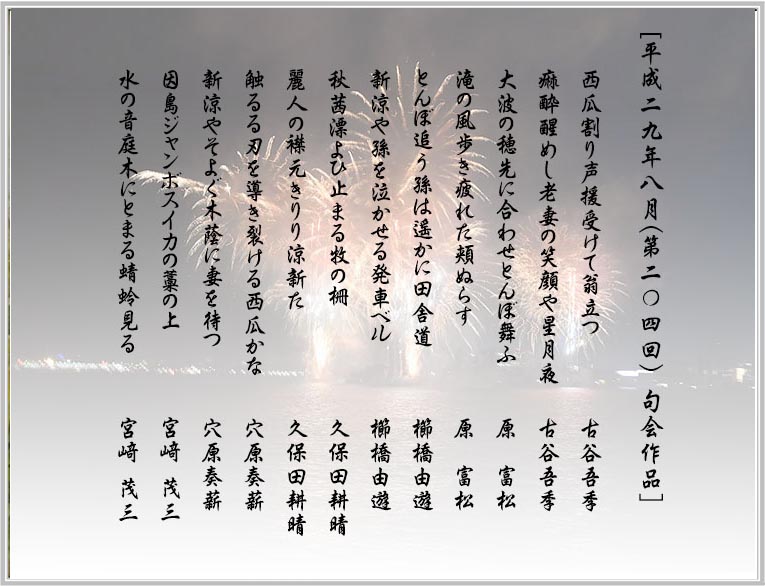 [平成二九年八月(第二〇四回) 句会作品]
西瓜割り声援受けて翁立つ 古谷吾季
麻酔醒めし老妻の笑顔や星月夜 古谷吾季
大波の穂先に合わせとんぼ舞ふ 原 富松
滝の風歩き疲れた頬ぬらす 原 富松
とんぼ追う孫は遥かに田舎道 櫛橋由遊
新涼や孫を泣かせる発車ベル 櫛橋由遊
秋茜漂よひ止まる牧の柵 久保田耕晴
麗人の襟元きりり涼新た 久保田耕晴
触るる刃を導き裂ける西瓜かな 穴原奏薪
新涼やそよぐ木蔭に妻を待つ 穴原奏薪
因島ジャンボスイカの藁の上 宮﨑 茂三
水の音庭木にとまる蜻蛉見る 宮﨑 茂三